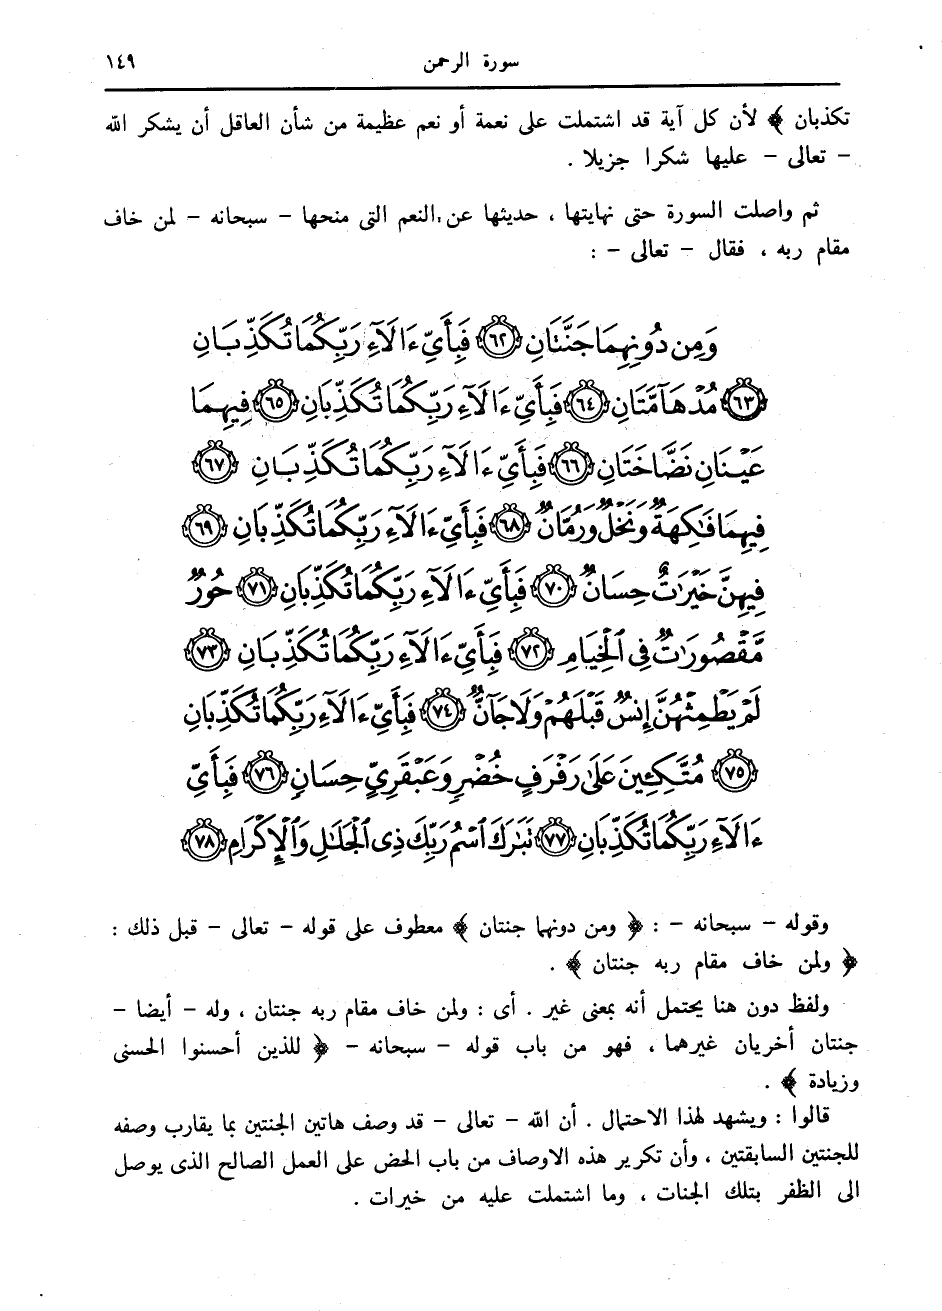 سورة الرحمن ١٤٩
تكذبان ﴾ لأن كل آية قد اشتملت على نعمة أو نعم عظيمة من شأن العاقل أن يشكر الله
– تعالى – عليها شكرا جزيلا .
ثم واصلت السورة حتى نهايتها ، حديثها عن النعم التى منحها – سبحانه – لمن خاف
مقام ربه ، فقال – تعالى – :
وَمِن دُونِهِمَا جَنَّتَانِ ﴿٦٢﴾ فَبِأَيِّ ءَالَآءِ رَبِّكُمَا تُكَذِّبَانِ
﴿٦٣﴾ مُدْهَآمَّتَانِ ﴿٦٤﴾ فَبِأَيِّ ءَالَآءِ رَبِّكُمَا تُكَذِّبَانِ ﴿٦٥﴾ فِيهِمَا
عَيْنَانِ نَضَّاخَتَانِ ﴿٦٦﴾ فَبِأَيِّ ءَالَآءِ رَبِّكُمَا تُكَذِّبَانِ ﴿٦٧﴾
فِيهِمَا فَٰكِهَةٌ وَنَخْلٌ وَرُمَّانٌ ﴿٦٨﴾ فَبِأَيِّ ءَالَآءِ رَبِّكُمَا تُكَذِّبَانِ ﴿٦٩﴾
فِيهِنَّ خَيْرَٰتٌ حِسَانٌ ﴿٧٠﴾ فَبِأَيِّ ءَالَآءِ رَبِّكُمَا تُكَذِّبَانِ ﴿٧١﴾ حُورٌ
مَّقْصُورَٰتٌ فِى ٱلْخِيَامِ ﴿٧٢﴾ فَبِأَيِّ ءَالَآءِ رَبِّكُمَا تُكَذِّبَانِ ﴿٧٣﴾
لَمْ يَطْمِثْهُنَّ إِنسٌ قَبْلَهُمْ وَلَا جَآنٌّ ﴿٧٤﴾ فَبِأَيِّ ءَالَآءِ رَبِّكُمَا تُكَذِّبَانِ
﴿٧٥﴾ مُتَّكِـِٔينَ عَلَىٰ رَفْرَفٍ خُضْرٍ وَعَبْقَرِيٍّ حِسَانٍ ﴿٧٦﴾ فَبِأَيِّ
ءَالَآءِ رَبِّكُمَا تُكَذِّبَانِ ﴿٧٧﴾ تَبَٰرَكَ ٱسْمُ رَبِّكَ ذِى ٱلْجَلَٰلِ وَٱلْإِكْرَامِ ﴿٧٨﴾
وقوله – سبحانه – : ﴿ ومن دونهما جنتان ﴾ معطوف على قوله – تعالى – قبل ذلك :
﴿ ولمن خاف مقام ربه جنتان ﴾ .
ولفظ دون هنا يحتمل أنه بمعنى غير . أى : ولمن خاف مقام ربه جنتان ، وله – أيضا –
جنتان أخريان غيرهما ، فهو من باب قوله – سبحانه – ﴿ للذين أحسنوا الحسنى
وزيادة ﴾ .
قالوا : ويشهد لهذا الاحتمال . أن الله – تعالى – قد وصف هاتين الجنتين بما يقارب وصفه
للجنتين السابقتين ، وأن تكرير هذه الاوصاف من باب الحض على العمل الصالح الذى يوصل
الى الظفر بتلك الجنات ، وما اشتملت عليه من خيرات .